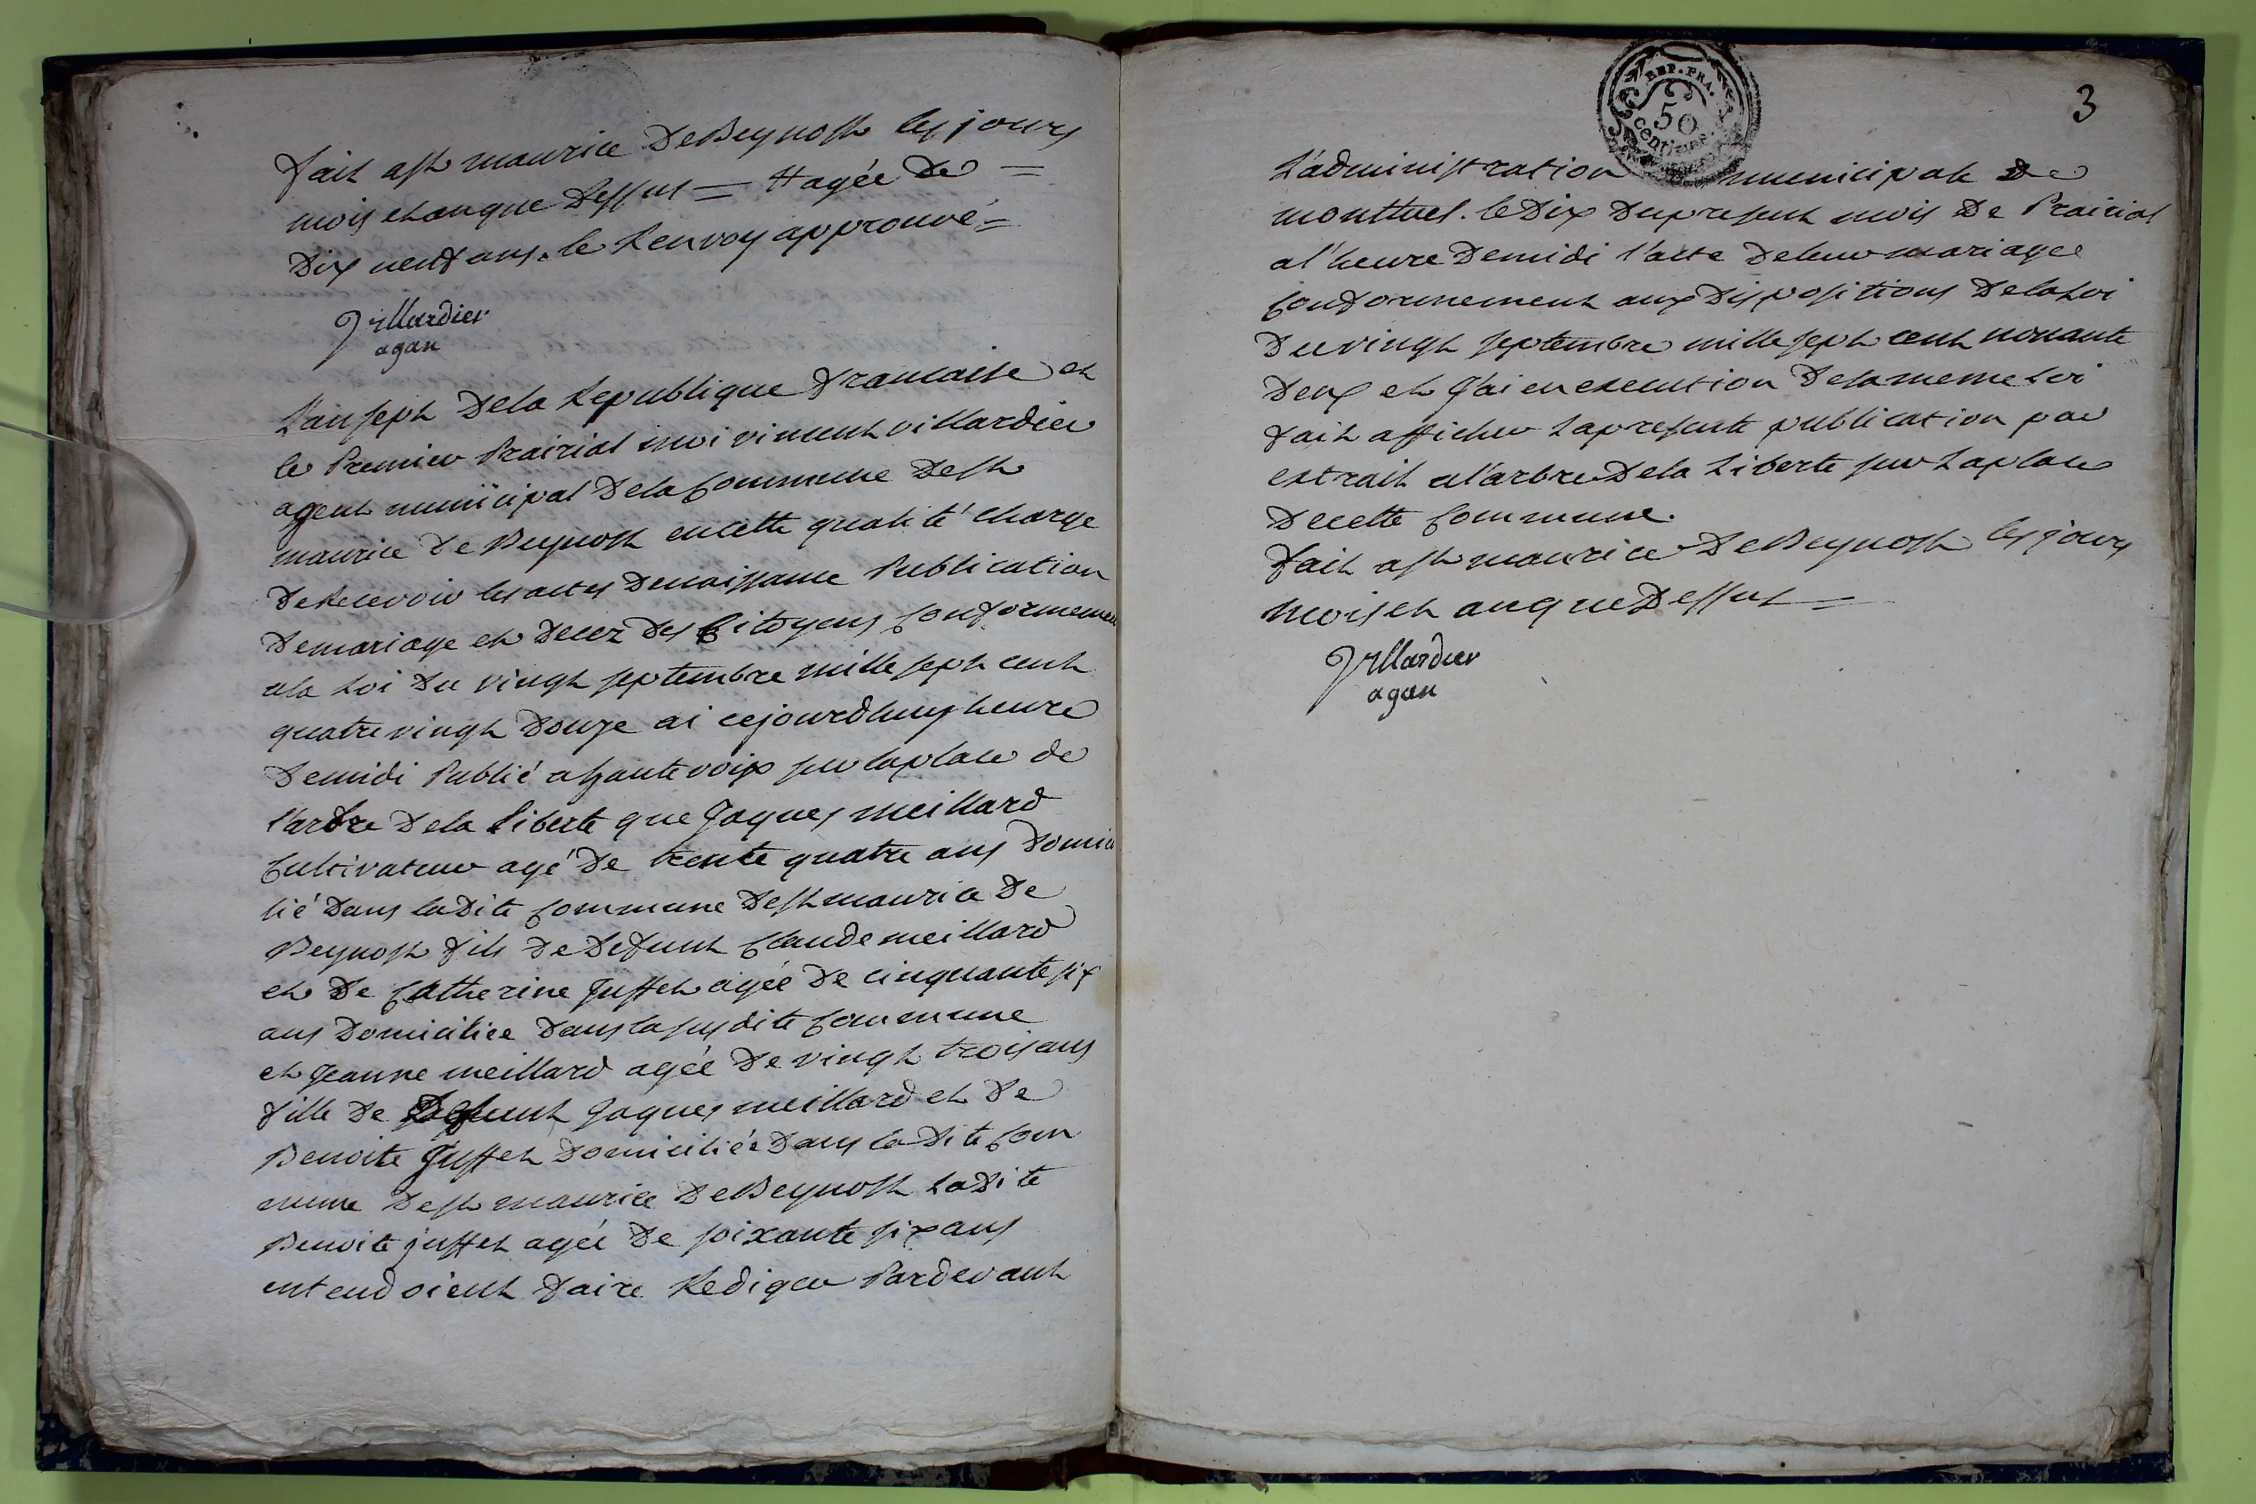 fait a st maurice De Beynost les jours
mois et an que Dessus = # agée De =
Dix neuf ans. le Renvoy approuvé =
Villardier
agan
L'an sept De la Republique francaise et
le Premier Prairial moi vincent villardier
agent municipal De la Commune De st
maurice De Beynost en cette qualité charge
De Recevoir les actes De naissance Publication
De mariage et Decez Des Citoyens Conformemen
a la Loi Du vingt septembre mille sept cent
quatre vingt Douze ai cejourdhuy heure
De midi Publié a haute voix sur la place de
l'arbre De la Liberte que Jaques meillard
Cultivateur agé De trente quatre ans Domici
lié Dans la Dite Commune De st maurice De
Beynost fils De Defunt Claude meillard
et De Catherine Juffet agée De cinquante six
ans Domiciliee Dans la susdite Commune
et Jeanne meillard agée De vingt trois ans
fille De Defunt Jaques meillard et De
Benoite Juffet Domiciliée Dans la Dite Com
mune De st maurice De Beynost La Dite
Benoite juffet agée De soixante six ans
entendoient faire Rediger Pardevant
3
REP. FRA.
50
centimes.
L'administration municipale De
montluel. le Dix Du present mois De Prairial
a l'heure De midi l'acte De leur mariage
Conformement aux Dispositions De la Loi
Du vingt septembre mille sept cent nonante
Deux et J'ai en execution De la meme Loi
fait afficher La presente publication par
extrait a l'arbre De la Liberte sur La place
De cette Commune.
fait a st maurice De Beynost les jours
mois et an que Dessus =
Villardier
agan